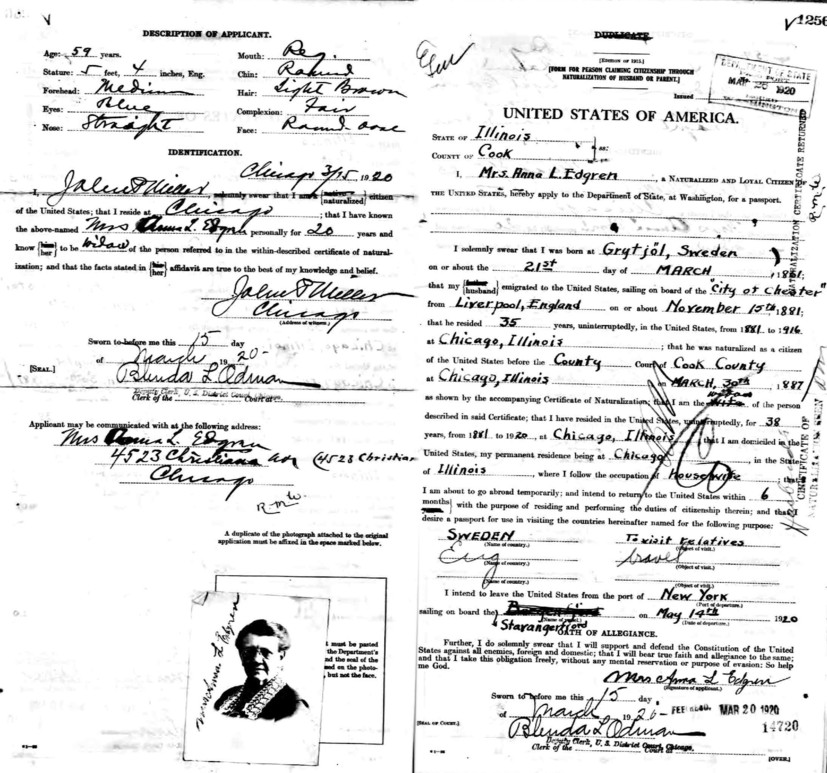 DESCRIPTION OF APPLICANT.
Age: 59 years.
Mouth: Reg.
Stature: 5 feet, 4 inches, Eng.
Chin: Round
Forehead: Medium
Hair: Light Brown
Eyes: Blue
Complexion: Fair
Nose: Straight
Face: Round
IDENTIFICATION.
Chicago 3/15 1920
I, John Miller, solemnly swear that I am {native naturalized} citizen
of the United States; that I reside at Chicago; that I have known
the above-named Mrs Anna L. Edgren personally for 20 years and
know {him her} to be widow of the person referred to in the within-described certificate of natural-
ization; and that the facts stated in {his her} affidavit are true to the best of my knowledge and belief.
Chicago
(Address of witness.)
Sworn to before me this 15 day
of March 1920-
[SEAL.]
Blenda L Odman
Deputy Clerk, U. S. District Court, Chicago.
Clerk of the Court at
Applicant may be communicated with at the following address:
Mrs Anna L. Edgren
4523 Christiana av (4523 Christian
Chicago
A duplicate of the photograph attached to the original
application must be affixed in the space marked below.
Mrs Anna L Edgren
must be pasted
the Department's
nd the seal of the
ed on the photo-
, but not the face.
DUPLICATE.
1256
[EDITION OF 1915.]
[FORM FOR PERSON CLAIMING CITIZENSHIP THROUGH
NATURALIZATION OF HUSBAND OR PARENT.]
Issued
DEPARTMENT OF STATE
1920
UNITED STATES OF AMERICA.
STATE OF Illinois
COUNTY OF Cook
ss:
I, Mrs. Anna L. Edgren, a NATURALIZED AND LOYAL CITIZEN OF
THE UNITED STATES, hereby apply to the Department of State, at Washington, for a passport.
I solemnly swear that I was born at Grytjöl, Sweden
on or about the 21st day of MARCH, 1861;
that my {father husband} emigrated to the United States, sailing on board of the "City of Chester"
from Liverpool, England on or about November 15th, 1881;
that he resided 35 years, uninterruptedly, in the United States, from 1881 to 1916
at Chicago, Illinois; that he was naturalized as a citizen
of the United States before the County Court of Cook County
at Chicago, Illinois on MARCH, 30th 1887
as shown by the accompanying Certificate of Naturalization; that I am the widow of the person
described in said Certificate; that I have resided in the United States, uninterruptedly, for 38
years, from 1881 to 1920, at Chicago, Illinois; that I am domiciled in the
United States, my permanent residence being at Chicago, in the State
of Illinois, where I follow the occupation of Housewife; that
I am about to go abroad temporarily; and intend to return to the United States within 6
months with the purpose of residing and performing the duties of citizenship therein; and that I
desire a passport for use in visiting the countries hereinafter named for the following purpose:
SWEDEN To visit relatives
(Name of country.) (Object of visit.)
Eng travel
(Name of country.) (Object of visit.)
(Name of country.) (Object of visit.)
I intend to leave the United States from the port of New York
(Port of departure.)
sailing on board the on May 14th 1920
(Name of vessel.) (Date of departure.)
Stavangerfjord
OATH OF ALLEGIANCE.
Further, I do solemnly swear that I will support and defend the Constitution of the United
States against all enemies, foreign and domestic; that I will bear true faith and allegiance to the same;
and that I take this obligation freely, without any mental reservation or purpose of evasion: So help
me God.
Mrs Anna L Edgren
(Signature of applicant.)
Sworn to before me this 15 day
of March 1920- MAR 20 1920
Blenda L Odman 14720
[SEAL OF COURT.]
Deputy Clerk, U. S. District Court, Chicago.
Clerk of the Court at
[OVER.]
NATURALIZATION CERTIFICATE RETURNED
CERTIFICATE OF
NATURALIZATION SEEN